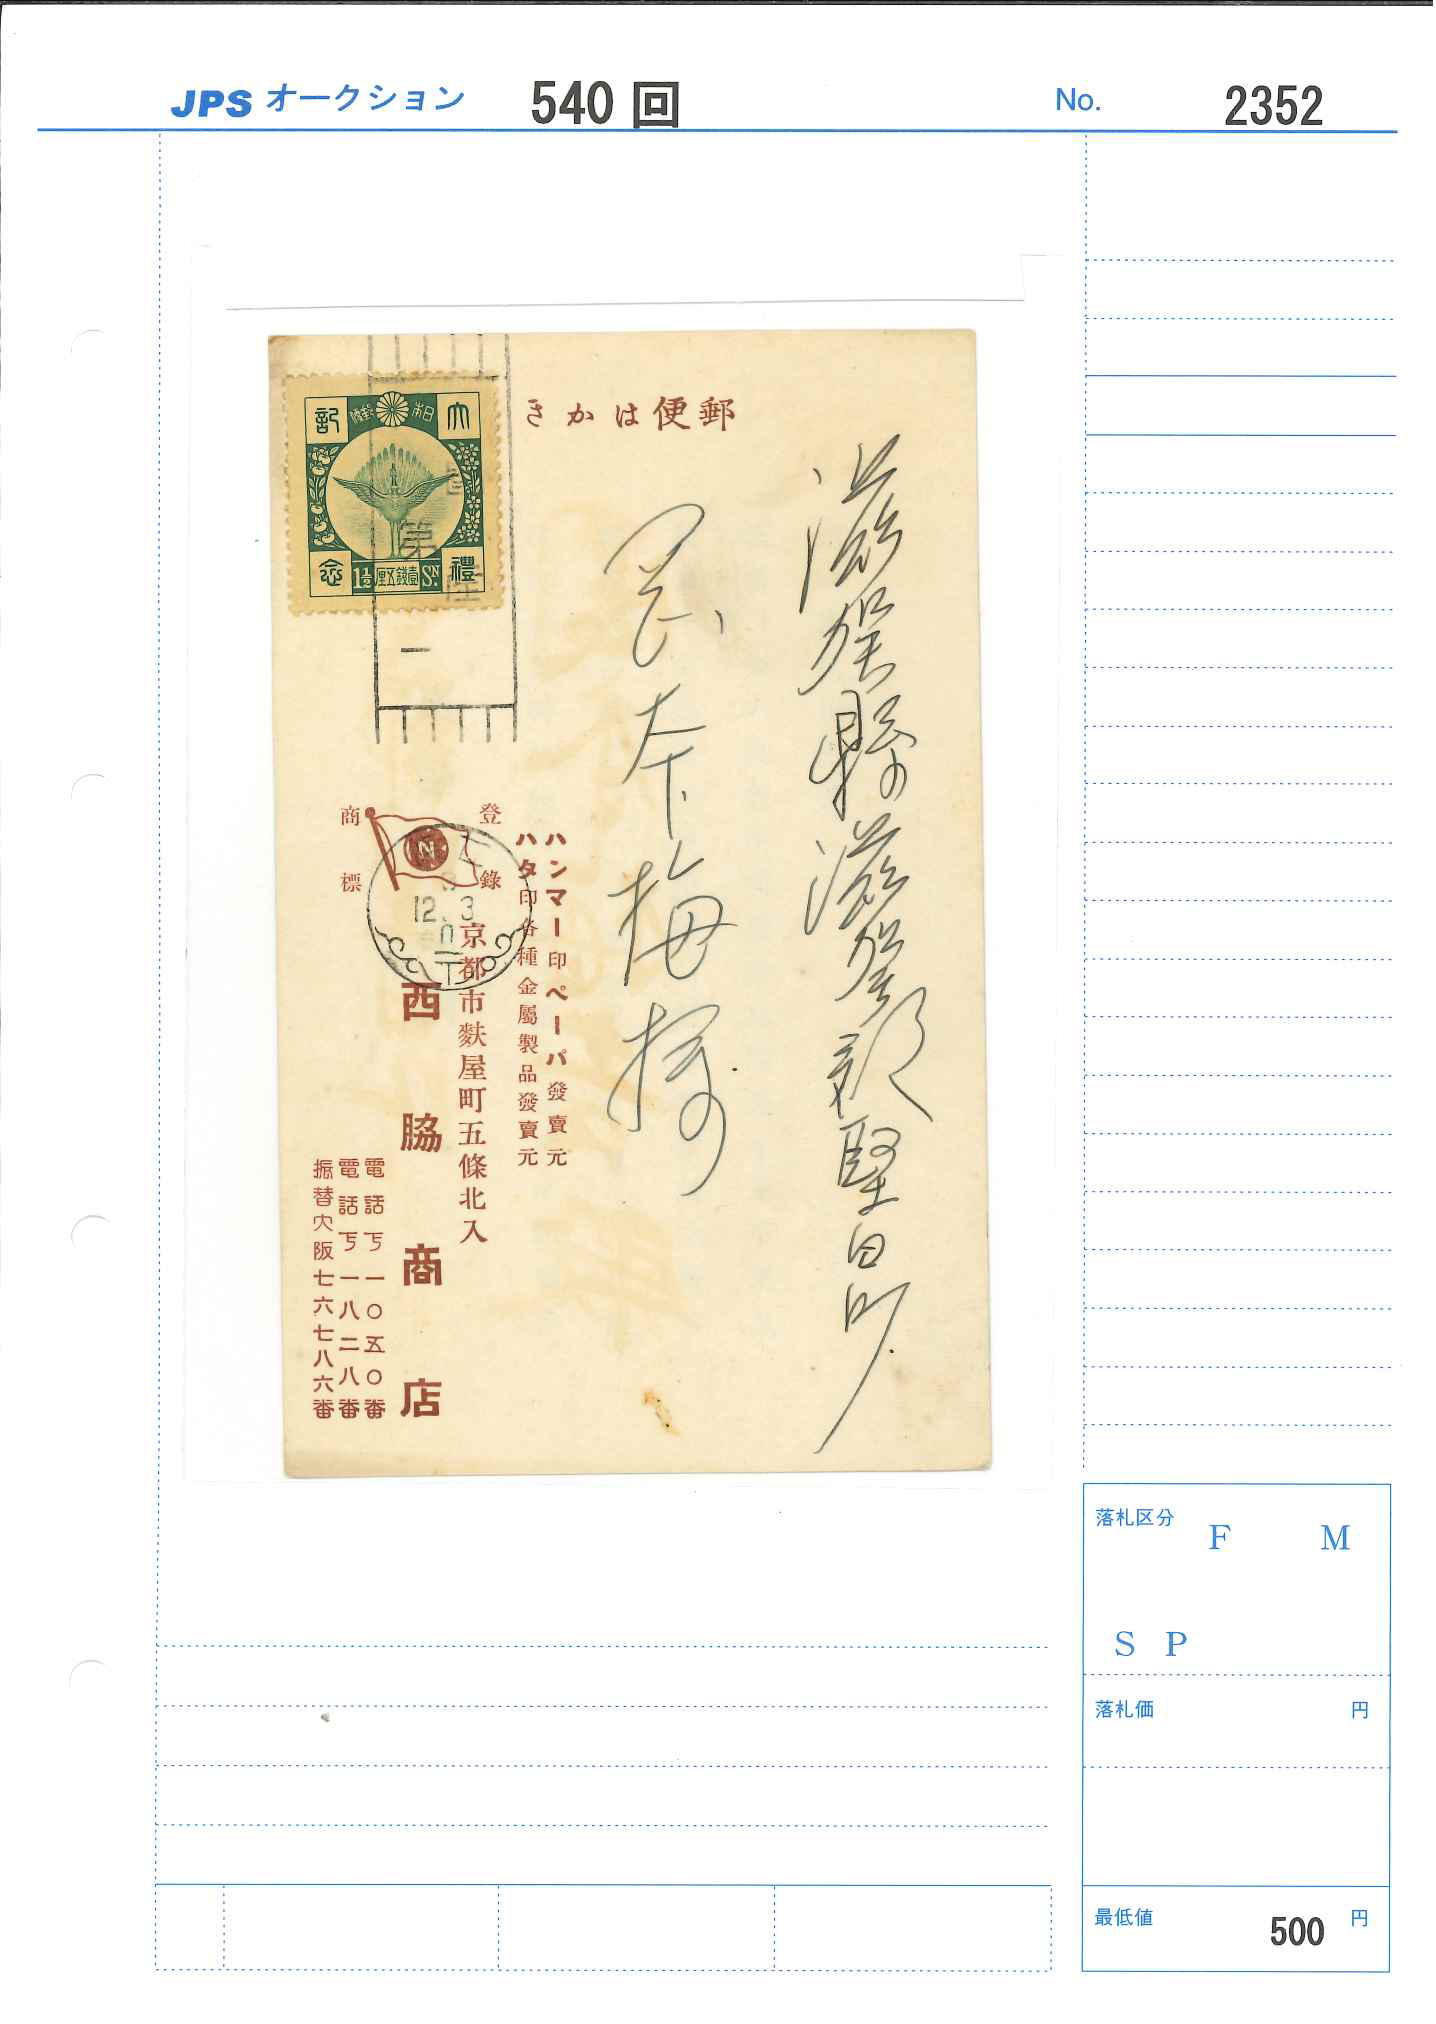 JPS オークション 540 回 No. 2352
郵便はかき
大禮記念
日本郵便
1½ 壹錢五厘 SN.
第
一
滋賀縣滋賀郡堅田町
岡本梅拶
ハンマー印ペーパ發賣元
ハタ印各種金屬製品發賣元
登錄
商標
N
12.3
京都市麩屋町五條北入
西脇商店
電話下一〇五〇番
電話下一八二八番
振替大阪七六七八六番
落札区分 F M
S P
落札価 円
最低値 500 円